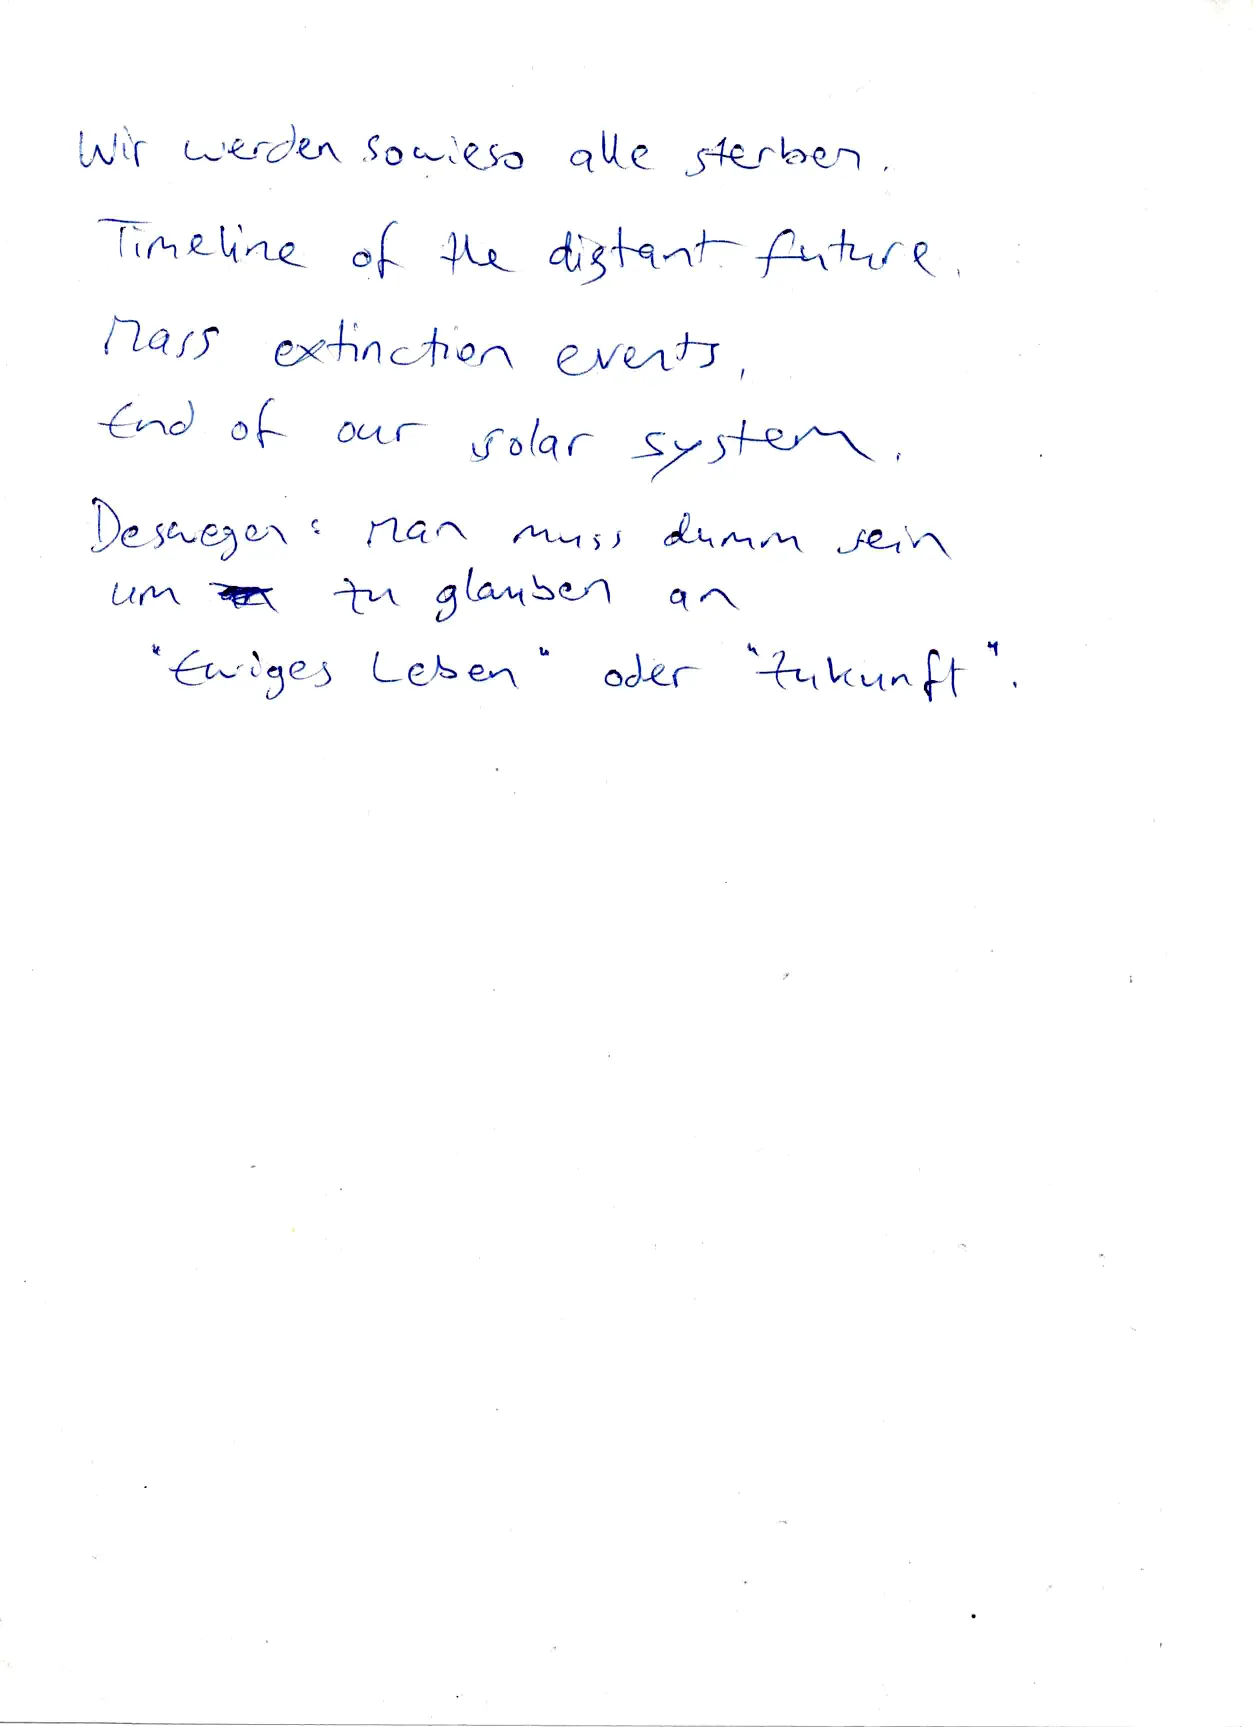 Wir werden sowieso alle sterben.
Timeline of the distant future.
Mass extinction events,
End of our solar system.
Deswegen: Man muss dumm sein
um zu glauben an
"Ewiges Leben" oder "Zukunft".